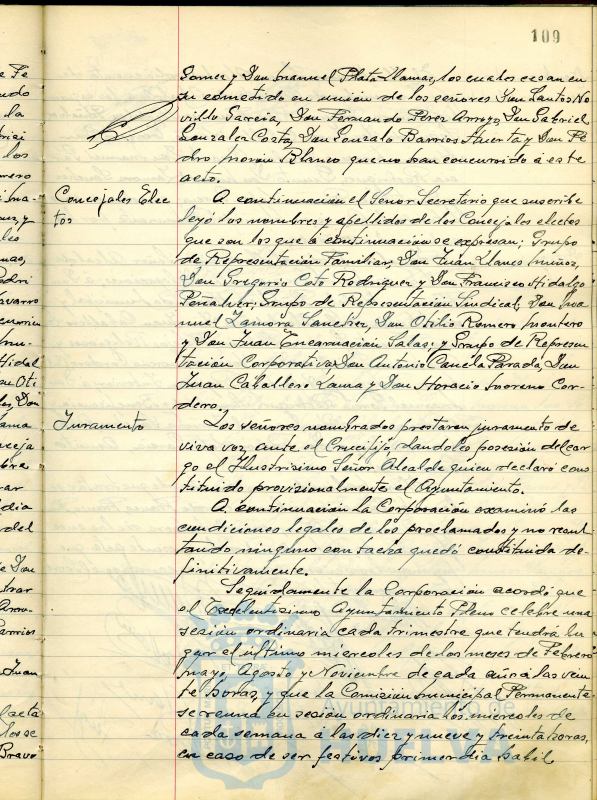 109
Gomez y Don Manuel Plata Llamas, los cuales cesan en
su cometido en unión de los señores Don Santos No
villo García, Don Fernando Pérez Arroyo, Don Gabriel
Gonzalez Costa, Don Gonzalo Barrios Huerta y Don Pe
dro Morón Blanco que no han concurrido á este
acto.
Concejales Elec
tos
A continuación el Señor Secretario que suscribe
leyó los nombres y apellidos de los Concejales electos
que son los que á continuación se expresan; Grupo
de Representación Familiar, Don Juan Llanes Muñoz,
Don Gregorio Coto Rodriguez y Don Francisco Hidalgo
Peñalver; Grupo de Representación Sindical, Don Ma
nuel Zamora Sanchez, Don Otilio Romero Montero
y Don Juan Encarnación Salas; y Grupo de Represen
tación Corporativa Don Antonio Canela Parada, Don
Juan Caballero Lama y Don Horacio Moreno Cor-
dero.
Juramento
Los señores nombrados prestaron juramento de
viva voz ante el Crucifijo, dandoles posesión del car
go el Ilustrisimo Señor Alcalde quien declaró cons
tituido provisionalmente el Ayuntamiento.
A continuación la Corporación examinó las
condiciones legales de los proclamados y no resul
tando ninguno con tacha quedó constituida de-
finitivamente.
Seguidamente la Corporación acordó que
el Excelentisimo Ayuntamiento Pleno celebre una
sesión ordinaria cada trimestre que tendrá lu
gar el último miercoles de los meses de Febrero
Mayo, Agosto y Noviembre de cada año á las vein
te horas, y que la Comisión Municipal Permanente
se reuna en sesión ordinaria los miercoles de
cada semana á las diez y nueve y treinta horas,
en caso de ser festivos primer dia habil
Ayuntamiento de
HUELVA